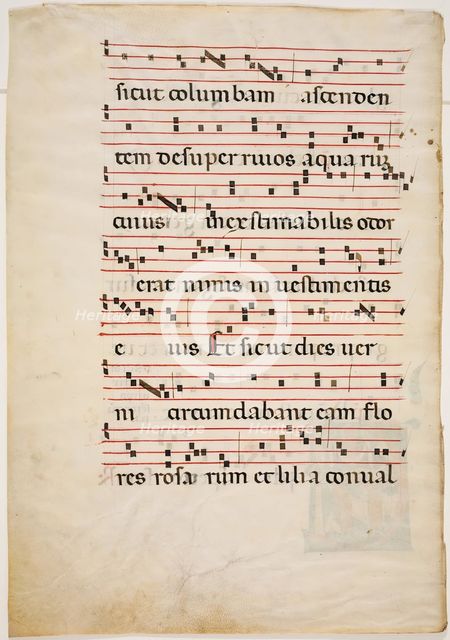 sicut columbam ascenden
tem desuper rivos aquarum
cuius inextimabilis odor
erat nimis in vestimentis
eius Et sicut dies ver
ni circumdabant eam flo
res rosarum et lilia conval